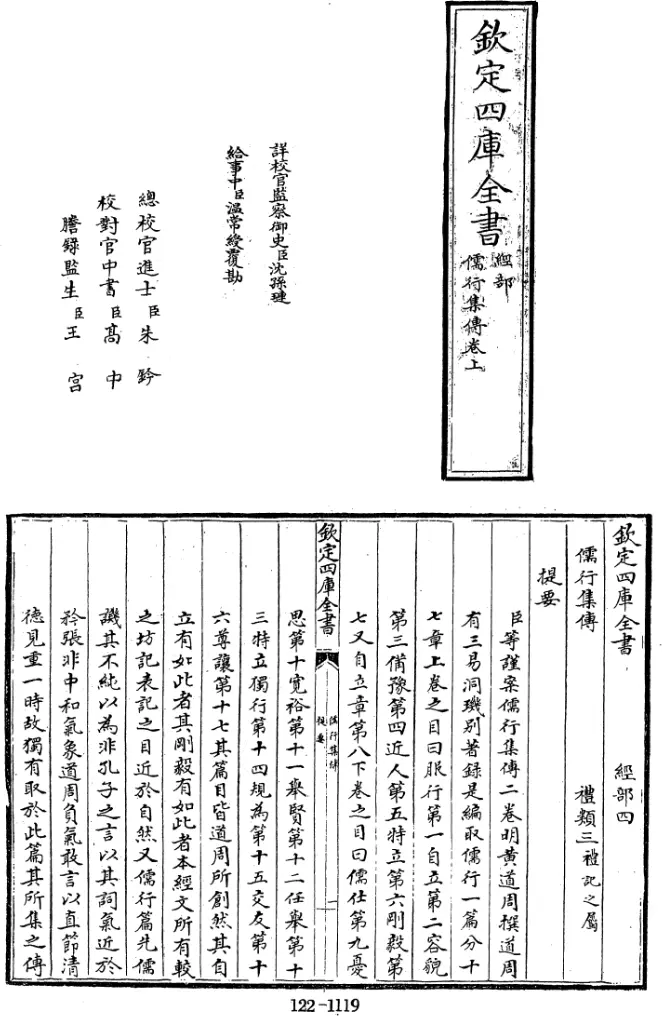 欽定四庫全書
經部
儒行集傳卷上
詳校官監察御史臣沈孫璉
給事中臣温常綬覆勘
總校官進士臣朱鈐
校對官中書臣髙中
謄錄監生臣王宫
欽定四庫全書 經部四
儒行集傳 禮類三禮記之屬
提要
臣等謹案儒行集傳二卷明黄道周撰道周
有三易洞璣别著録是編取儒行一篇分十
七章上卷之目曰服行第一自立第二容貌
第三備豫第四近人第五特立第六剛毅第
七又自立章第八下卷之目曰儒仕第九憂
欽定四庫全書
儒行集傳
提要
一
思第十寛裕第十一舉賢第十二任舉第十
三特立獨行第十四規為第十五交友第十
六尊讓第十七其篇目皆道周所創然其自
立有如此者其剛毅有如此者本經文所有較
之坊記表記之目近於自然又儒行篇先儒
譏其不純以為非孔子之言以其詞氣近於
矜張非中和氣象道周負氣敢言以直節清
德見重一時故獨有取於此篇其所集之傳
122-1119